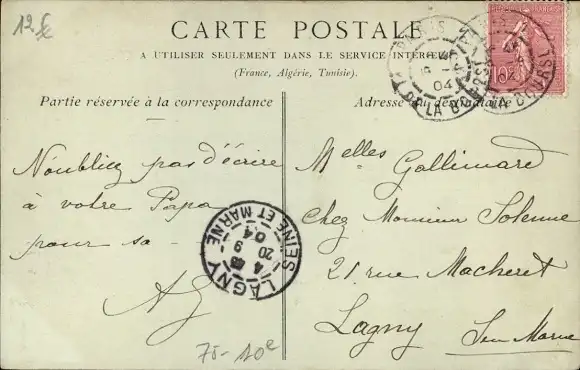 12 f
CARTE POSTALE
A UTILISER SEULEMENT DANS LE SERVICE INTÉRIEUR
(France, Algérie, Tunisie).
Partie réservée à la correspondance
Adresse du destinataire
N'oubliez pas d'écrire
à votre Papa
pour sa -
AG
Melles Gallimard
Chez Monsieur Solenne
21 rue Macheret
Lagny Seine Marne
PARIS
04
DE LA BOURSE
10
LAGNY
SEINE ET MARNE
20
9
04
75- 10e